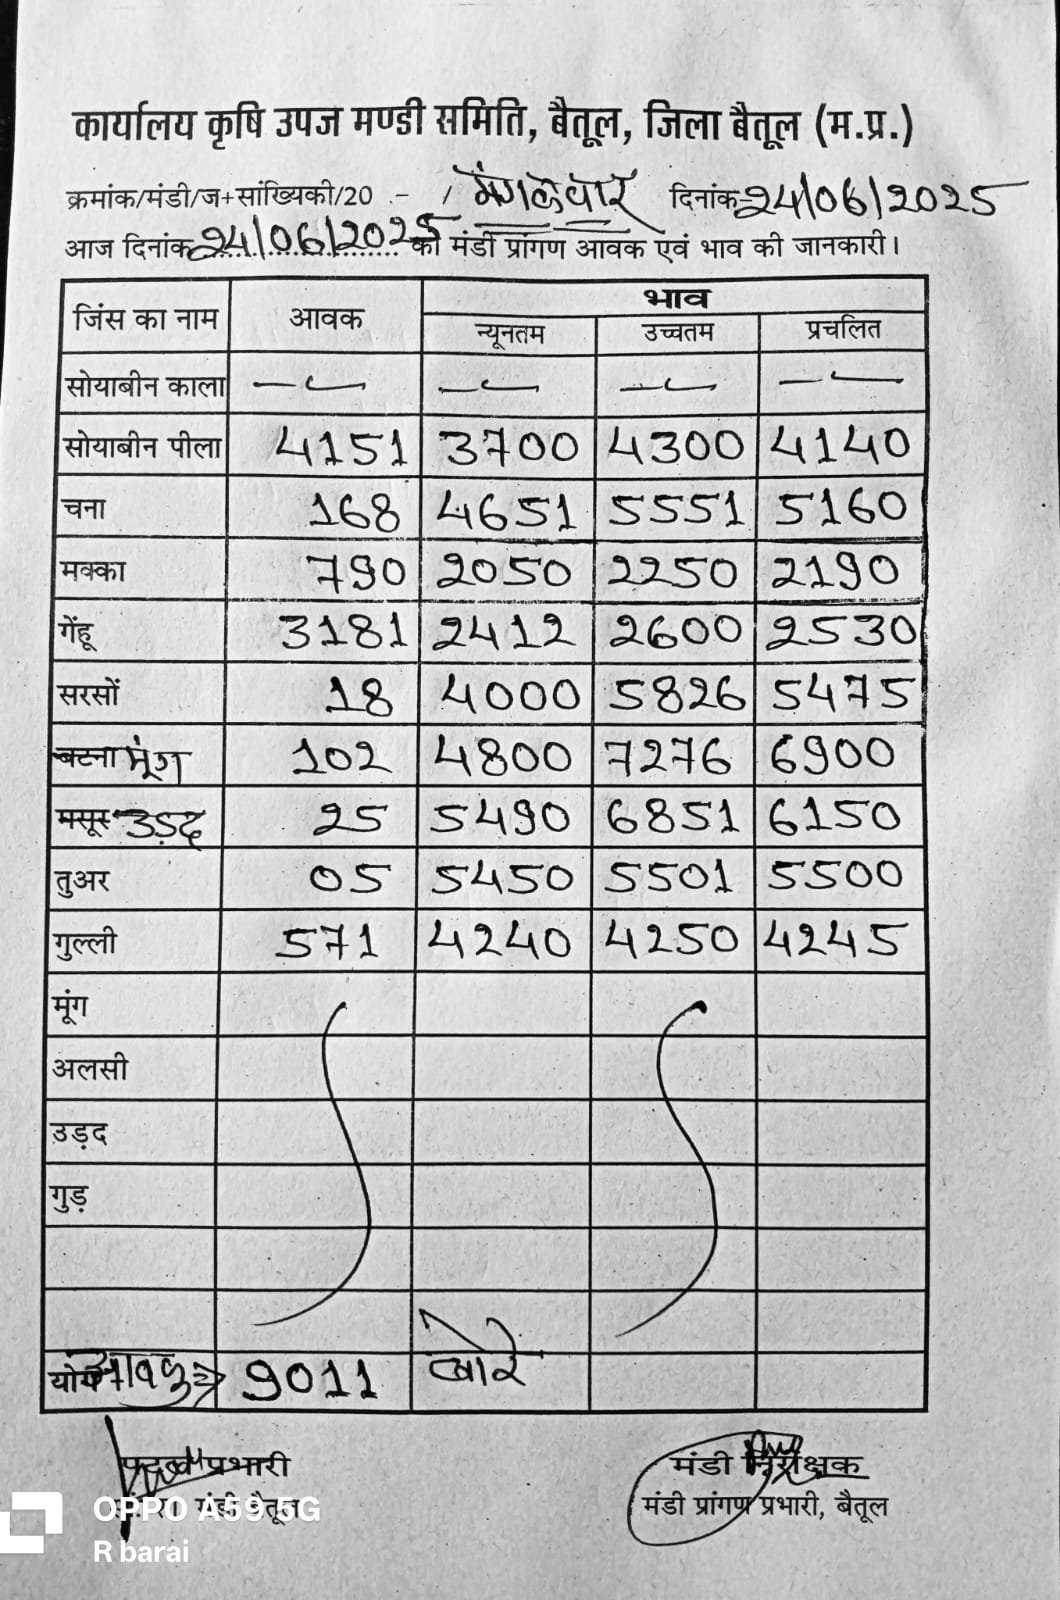 कार्यालय कृषि उपज मण्डी समिति, बैतूल, जिला बैतूल (म.प्र.)
क्रमांक/मंडी/ज+सांख्यिकी/20 - / मंगलवार दिनांक 24/06/2025
आज दिनांक 24/06/2025 को मंडी प्रांगण आवक एवं भाव की जानकारी।
जिंस का नाम आवक भाव
न्यूनतम उच्चतम प्रचलित
सोयाबीन काला — — — —
सोयाबीन पीला 4151 3700 4300 4140
चना 168 4651 5551 5160
मक्का 790 2050 2250 2190
गेंहू 3181 2412 2600 2530
सरसों 18 4000 5826 5475
बटना मूंग 102 4800 7276 6900
मसूर उड़द 25 5490 6851 6150
तुअर 05 5450 5501 5500
गुल्ली 571 4240 4250 4245
मूंग
अलसी
उड़द
गुड़
योग आवक 9011 बोरे
प्रभारी मंडी निरीक्षक
मंडी बैतूल मंडी प्रांगण प्रभारी, बैतूल
OPPO A59 5G
R barai